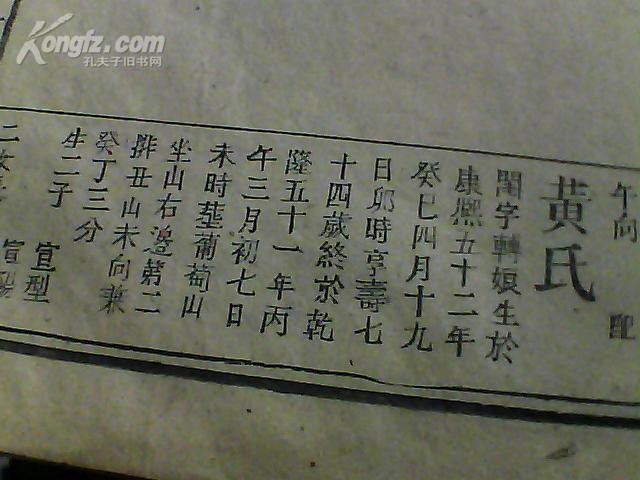 Kongfz.com
孔夫子旧书网
午向
配
黃氏
閨字轉娘生於
康熈五十二年
癸巳四月十九
日卯時亨壽七
十四歲終於乾
隆五十一年丙
午三月初七日
未時塟葡萄山
坐山右邉第二
排丑山未向兼
癸丁三分
生二子
宣型
宣陽
二女長